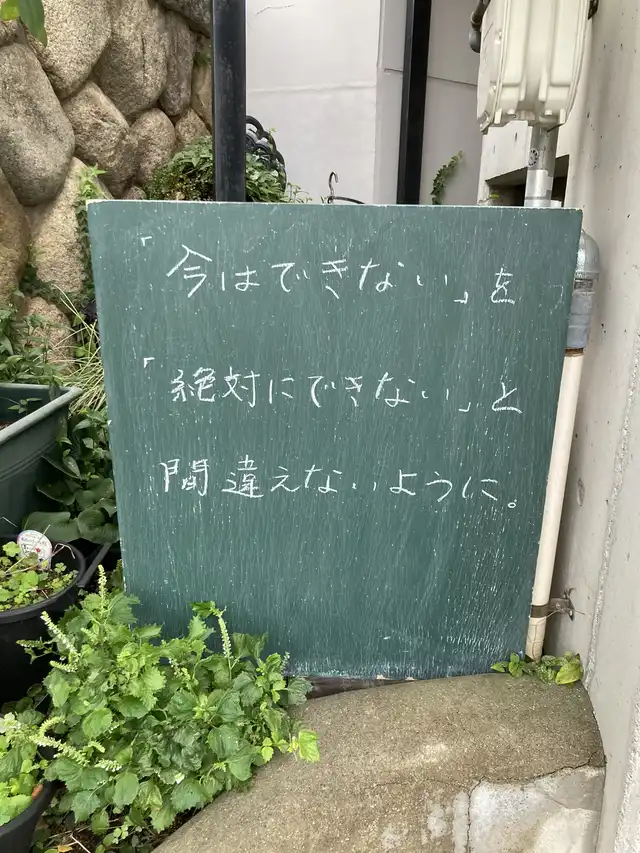 「今はできない」を
「絶対にできない」と
間違えないように。